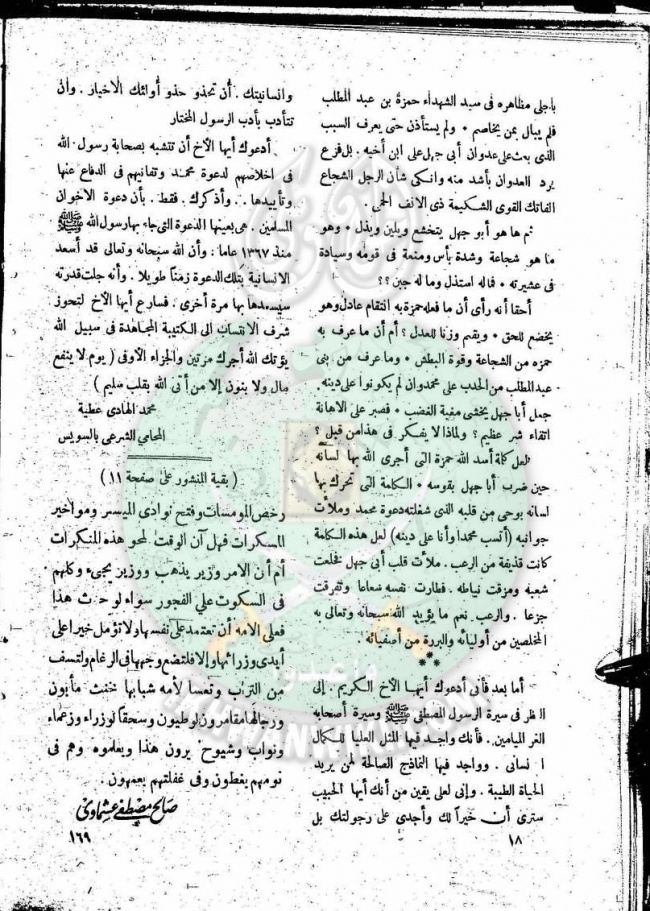 بأجلى مظاهره فى سيد الشهداء حمزة بن عبد المطلب
فلم يبال بمن يخاصم • ولم يستأذن حتى يعرف السبب
الذى بعث على عدوان أبى جهل على ابن أخيه . بل فزع
يرد العدوان بأشد منه وانكى شأن الرجل الشجاع
الفاتك القوى الشكيمة ذى الانف الحمى .
ثم ها هو أبو جهل يتخشع ويلين ويذل • وهو
ما هو شجاعة وشدة بأس ومنعة فى قومه وسيادة
فى عشيرته • فماله استذل وما له جبن ؟؟
أحقا أنه رأى أن ما فعله حمزة به انتقام عادل وهو
يخضع للحق • ويقيم وزنا للعدل ؟ أم أن ما عرف به
حمزه من الشجاعة وقوة البطش • وما عرف من بنى
عبد المطلب من الحدب على محمد وان لم يكونوا على دينه .
جعل أبا جهل يخشى مغبة الغضب • فصبر على الاهانة
اتقاء شر عظيم ؟ ولماذا لا يفكر فى هذا من قبل ؟
لعل كلمة أسد الله حمزة التى أجرى الله بها لسانه
حين ضرب أبا جهل بقوسه • الكلمة التى تحرك بها
لسانه بوحى من قلبه الذى شغلته دعوة محمد وملأت
جوانبه (أتسب محمدا وأنا على دينه) لعل هذه الكلمة
كانت قذيفة من الرعب . ملأت قلب أبى جهل فخلعت
شعبه ومزقت نياطه . فطارت نفسه شعاعا وتفرقت
جزعا . والرعب . نعم ما يؤيد الله سبحانه وتعالى به
المخلصين من أوليائه والبررة من أصفيائه .
* * *
أما بعد فأنى أدعوك أيها الآخ الكريم . إلى
النظر فى سيرة الرسول المصطفى ﷺ وسيرة أصحابه
الغر الميامين . فأنك واجد فيها المثل العليا للكمال
الانسانى . وواجد فيها النماذج الصالحة لمن يريد
الحياة الطيبة . وإنى لعلى يقين من أنك أيها الحبيب
سترى أن خيراً لك وأجدى على رجولتك بل
١٨
وانسانيتك . أن تحذو حذو أولئك الاخيار . وان
تتأدب بأدب الرسول المختار
أدعوك أيها الآخ أن تتشبه بصحابة رسول الله
فى اخلاصهم لدعوة محمد وتفانيهم فى الدفاع عنها
وتأييدها . وأذكرك . فقط . بأن دعوة الاخوان
المسلمين . هى بعينها الدعوة التى جاء بها رسول الله ﷺ
منذ ١٣٦٧ عاما : وأن الله سبحانه وتعالى قد أسعد
الانسانية بتلك الدعوة زمنًا طويلا . وأنه جلت قدرته
سيسعدها بها مرة أخرى . فسارع أيها الآخ لتحوز
شرف الانتساب الى الكتيبة المجاهدة فى سبيل الله
يؤتك الله أجرك مرتين والجزاء الأوفى ( يوم لا ينفع
مال ولا بنون إلا من أتى الله بقلب سليم )
محمد الهادى عطية
المحامي الشرعى بالسويس
( بقية المنشور على صفحة ١١ )
رخص المومسات وفتح نوادى الميسر ومواخير
المسكرات فهل آن الوقت لمحو هذه المنكرات
أم أن الامر وزير يذهب ووزير يجىء وكلهم
فى السكوت علي الفجور سواء لو حدث هذا
فعلى الامه أن تعتمد على نفسها ولا تؤمل خيرا على
أيدى وزرائها وإلا فلتضع وجهها فى الرغام ولتسف
من التراب وتعسا لأمه شبابها خنث مأبون
ورجالها مقامرون لوطيون وسحقا لوزراء وزعماء
ونواب وشيوخ يرون هذا ويعلموه وهم فى
نومهم يغطون وفى غفلتهم يعمهون .
صالح مصطفى عشماوى
١٦٩
IKHWANWIKI